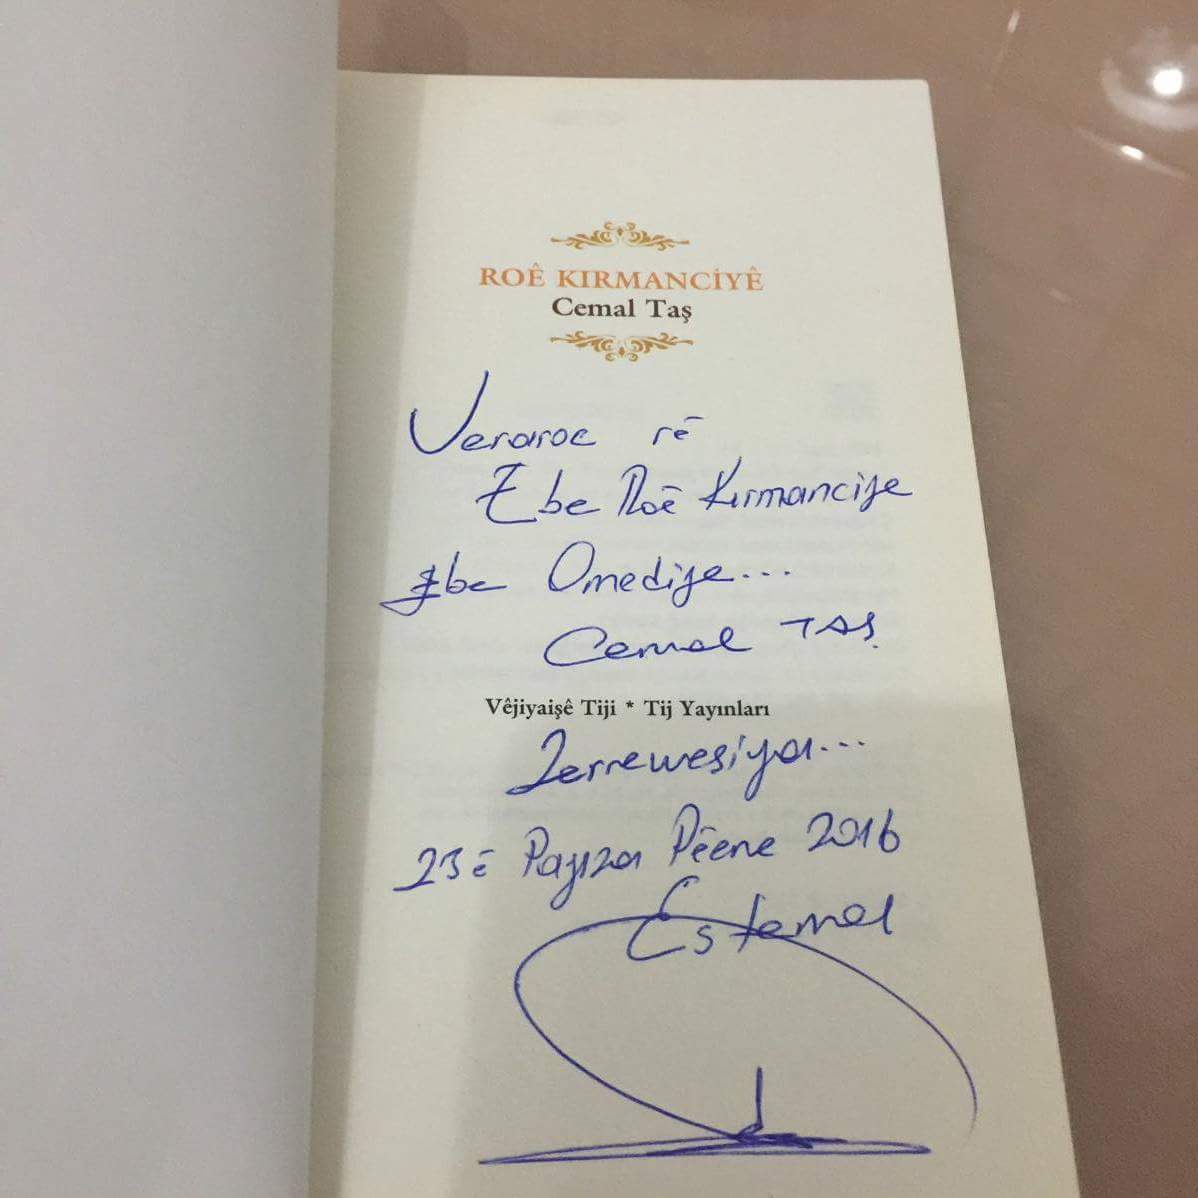 ROÊ KIRMANCİYÊ
Cemal Taş
Veraroc rê
Ebe Roê Kırmanciye
Ebe Omediye...
Cemal TAŞ
Vêjiyaişê Tiji * Tij Yayınları
Zerrewesiya...
23ê Payıza Pêene 2016
Estemol